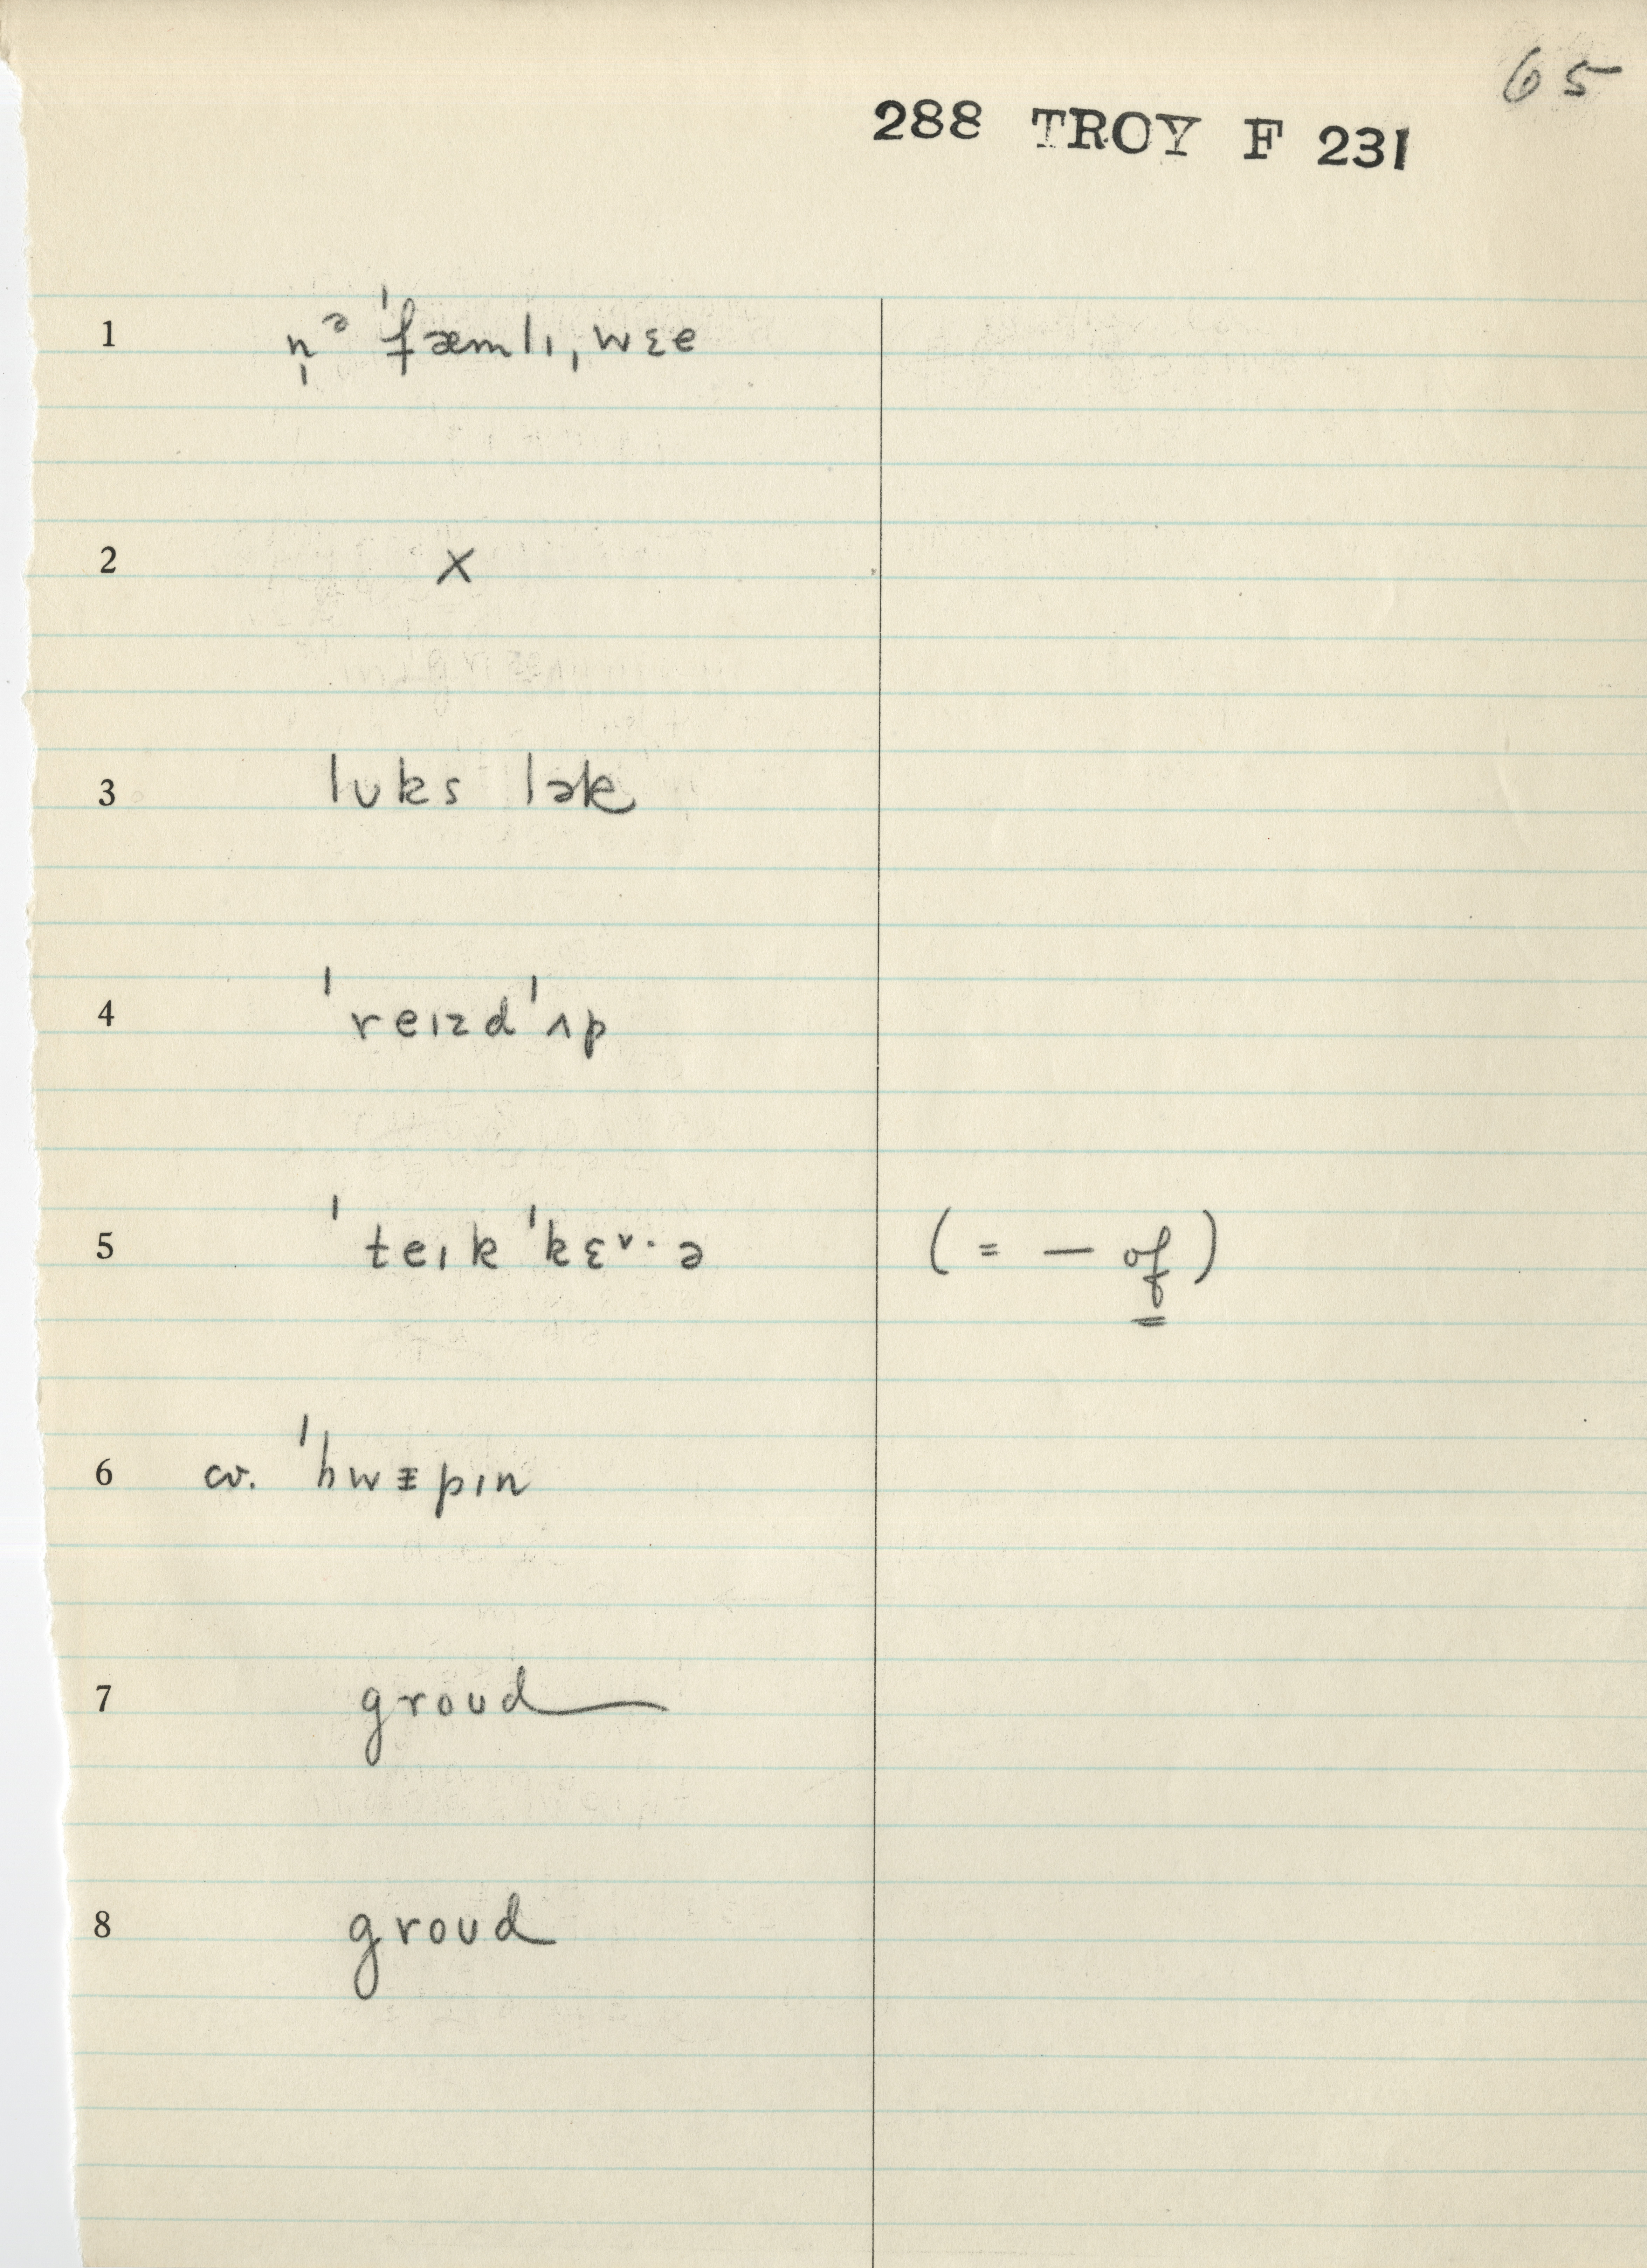 65
288 TROY F 231
1 n̩ ᵊ ˈfæmlɪ, wɛə
2 X
3 lʊks lək
4 ˈreɪzdˈʌp
5 ˈteɪkˈkɛᵛ·ə (= — of)
6 cv. ˈhwɪpɪn
7 groʊd—
8 groʊd